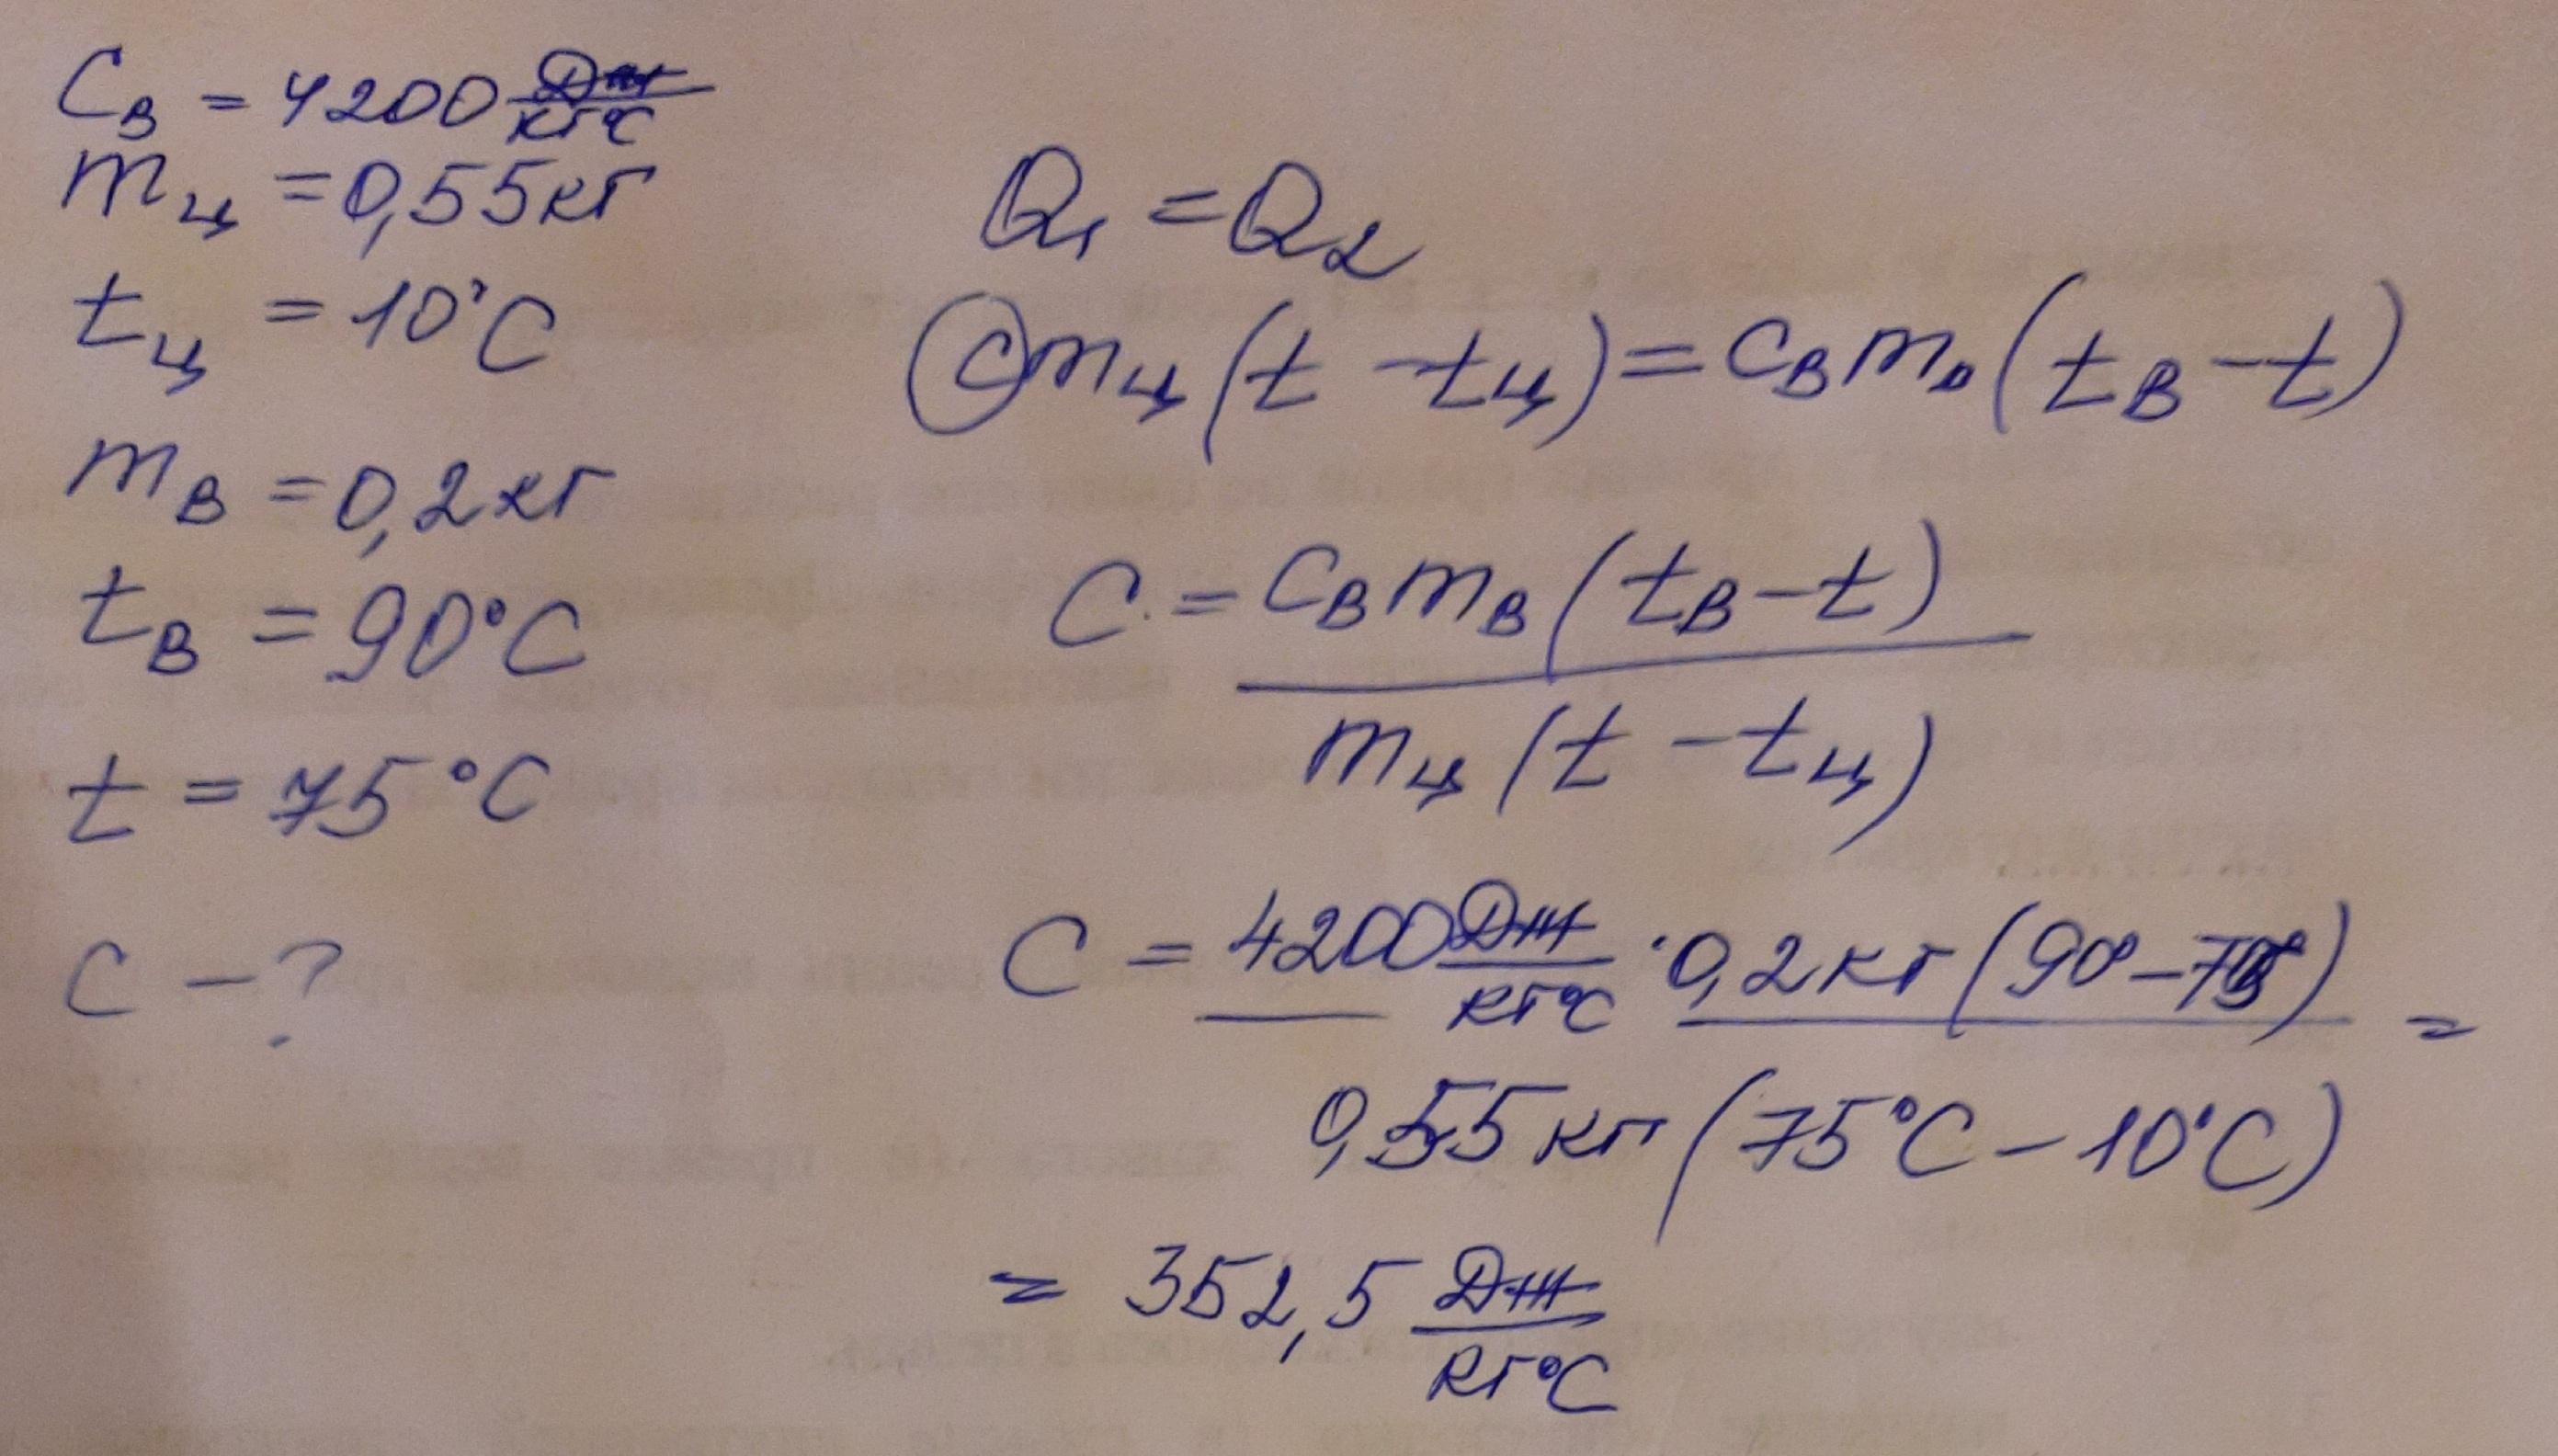 Cв = 4200 Дж/кг°C
mц = 0,55 кг
tц = 10°C
mв = 0,2 кг
tв = 90°C
t = 75°C
C - ?
Q1 = Q2
cmц(t - tц) = cвmв(tв - t)
C = cвmв(tв - t)
mц(t - tц)
C = 4200 Дж/кг°C · 0,2 кг (90° - 75°) =
0,55 кг (75°C - 10°C)
= 352,5 Дж/кг°C